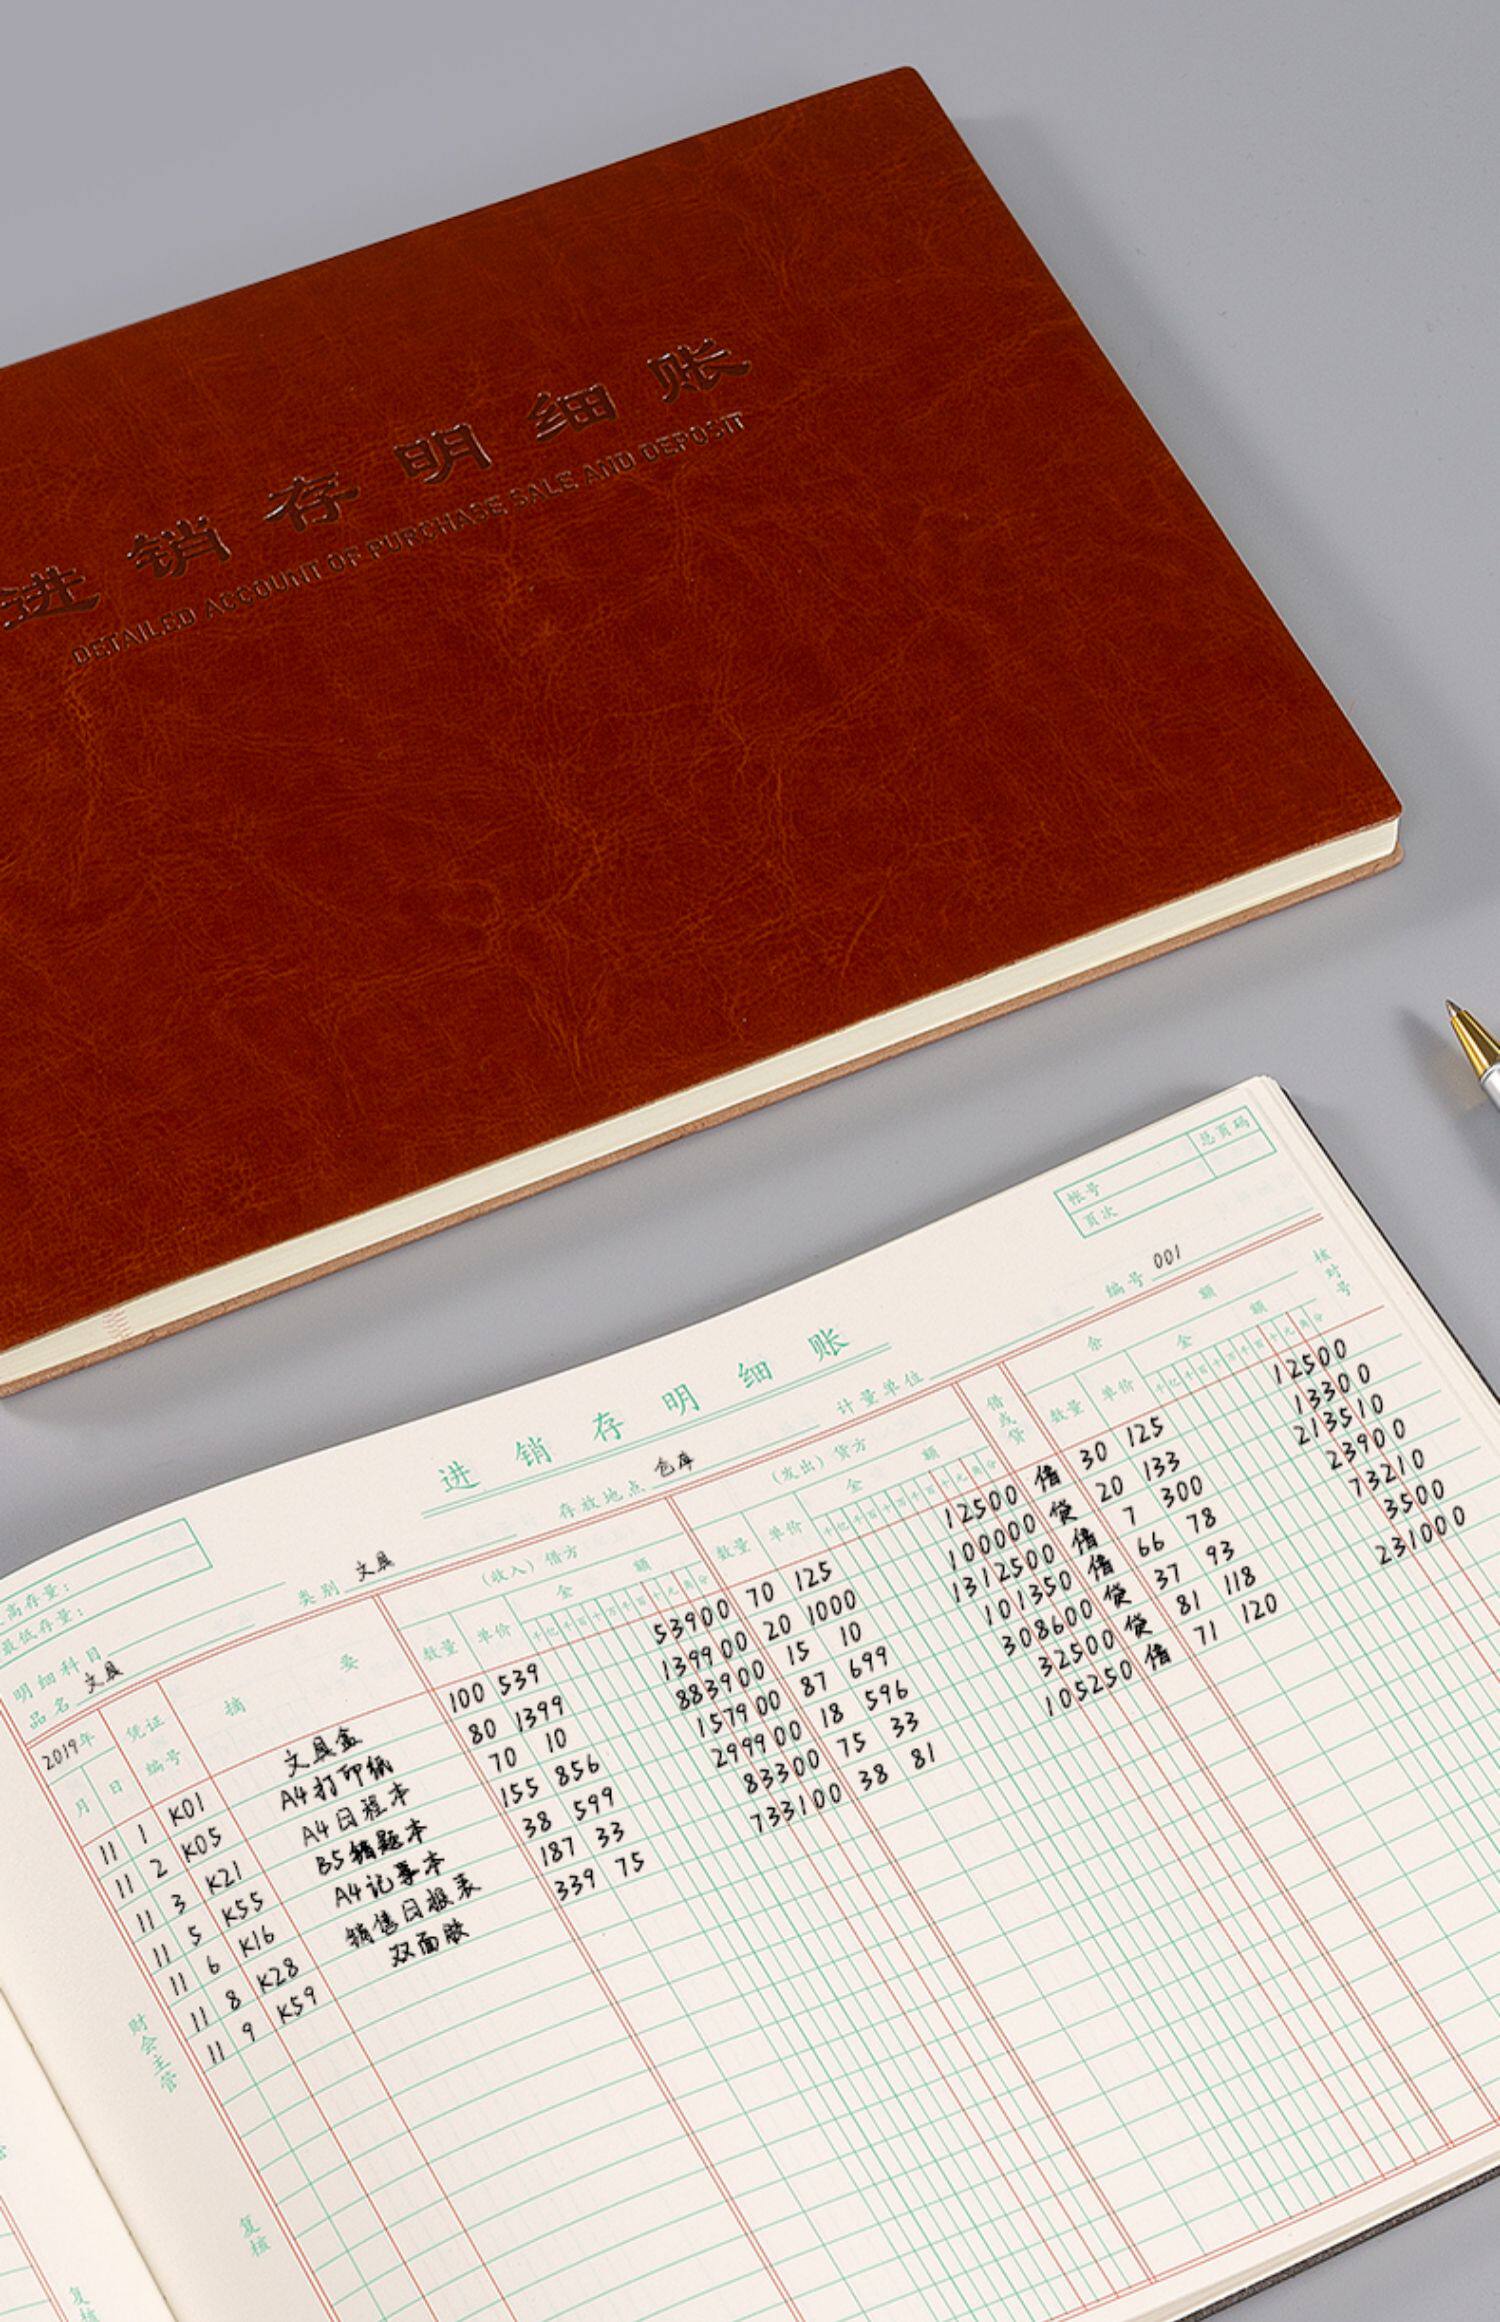 进销存明细账
DETAILED ACCOUNT OF PURCHASE SALE AND DEPOSIT
总页码
帐号
页次
编号 001
进销存明细账
高存量:
最低存量:
明细科目
类别 文具
存放地点 仓库
计量单位
品名 文具
2019年 凭证 摘要 (收入) 借方 (发出) 贷方 借或贷 余额 核对号
月 日 编号 数量 单价 金额 数量 单价 金额 数量 单价 金额
千亿千百十万千百十元角分
11 1 K01 文具盒 100 539 53900 70 125 12500 借 30 125 12500
11 2 K05 A4打印纸 80 1399 139900 20 1000 100000 贷 20 133 13300
11 3 K21 A4日程本 70 10 883900 15 10 1312500 借 7 300 213510
11 5 K55 B5错题本 155 856 157900 87 699 101350 借 66 78 23900
11 6 K16 A4记事本 38 599 299900 18 596 308600 贷 37 93 73210
11 8 K28 销售日报表 187 33 83300 75 33 32500 贷 81 118 3500
11 9 K59 双面胶 339 75 733100 38 81 105250 借 71 120 231000
财会主管
复核
复核